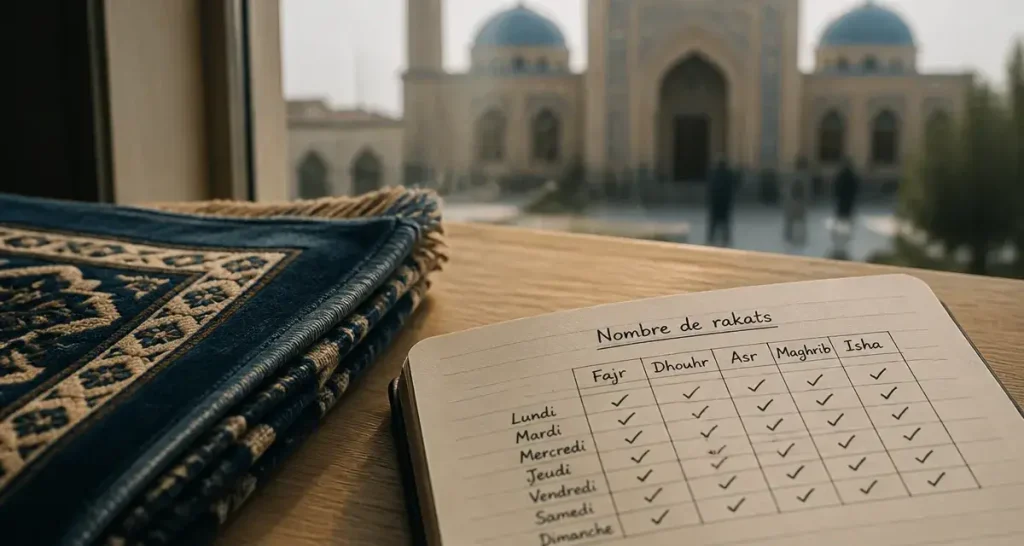 Nombre de rakats
Fajr Dhouhr Asr Maghrib Isha
Lundi
Mardi
Mercredi
Jeudi
Vendredi
Samedi
Dimanche